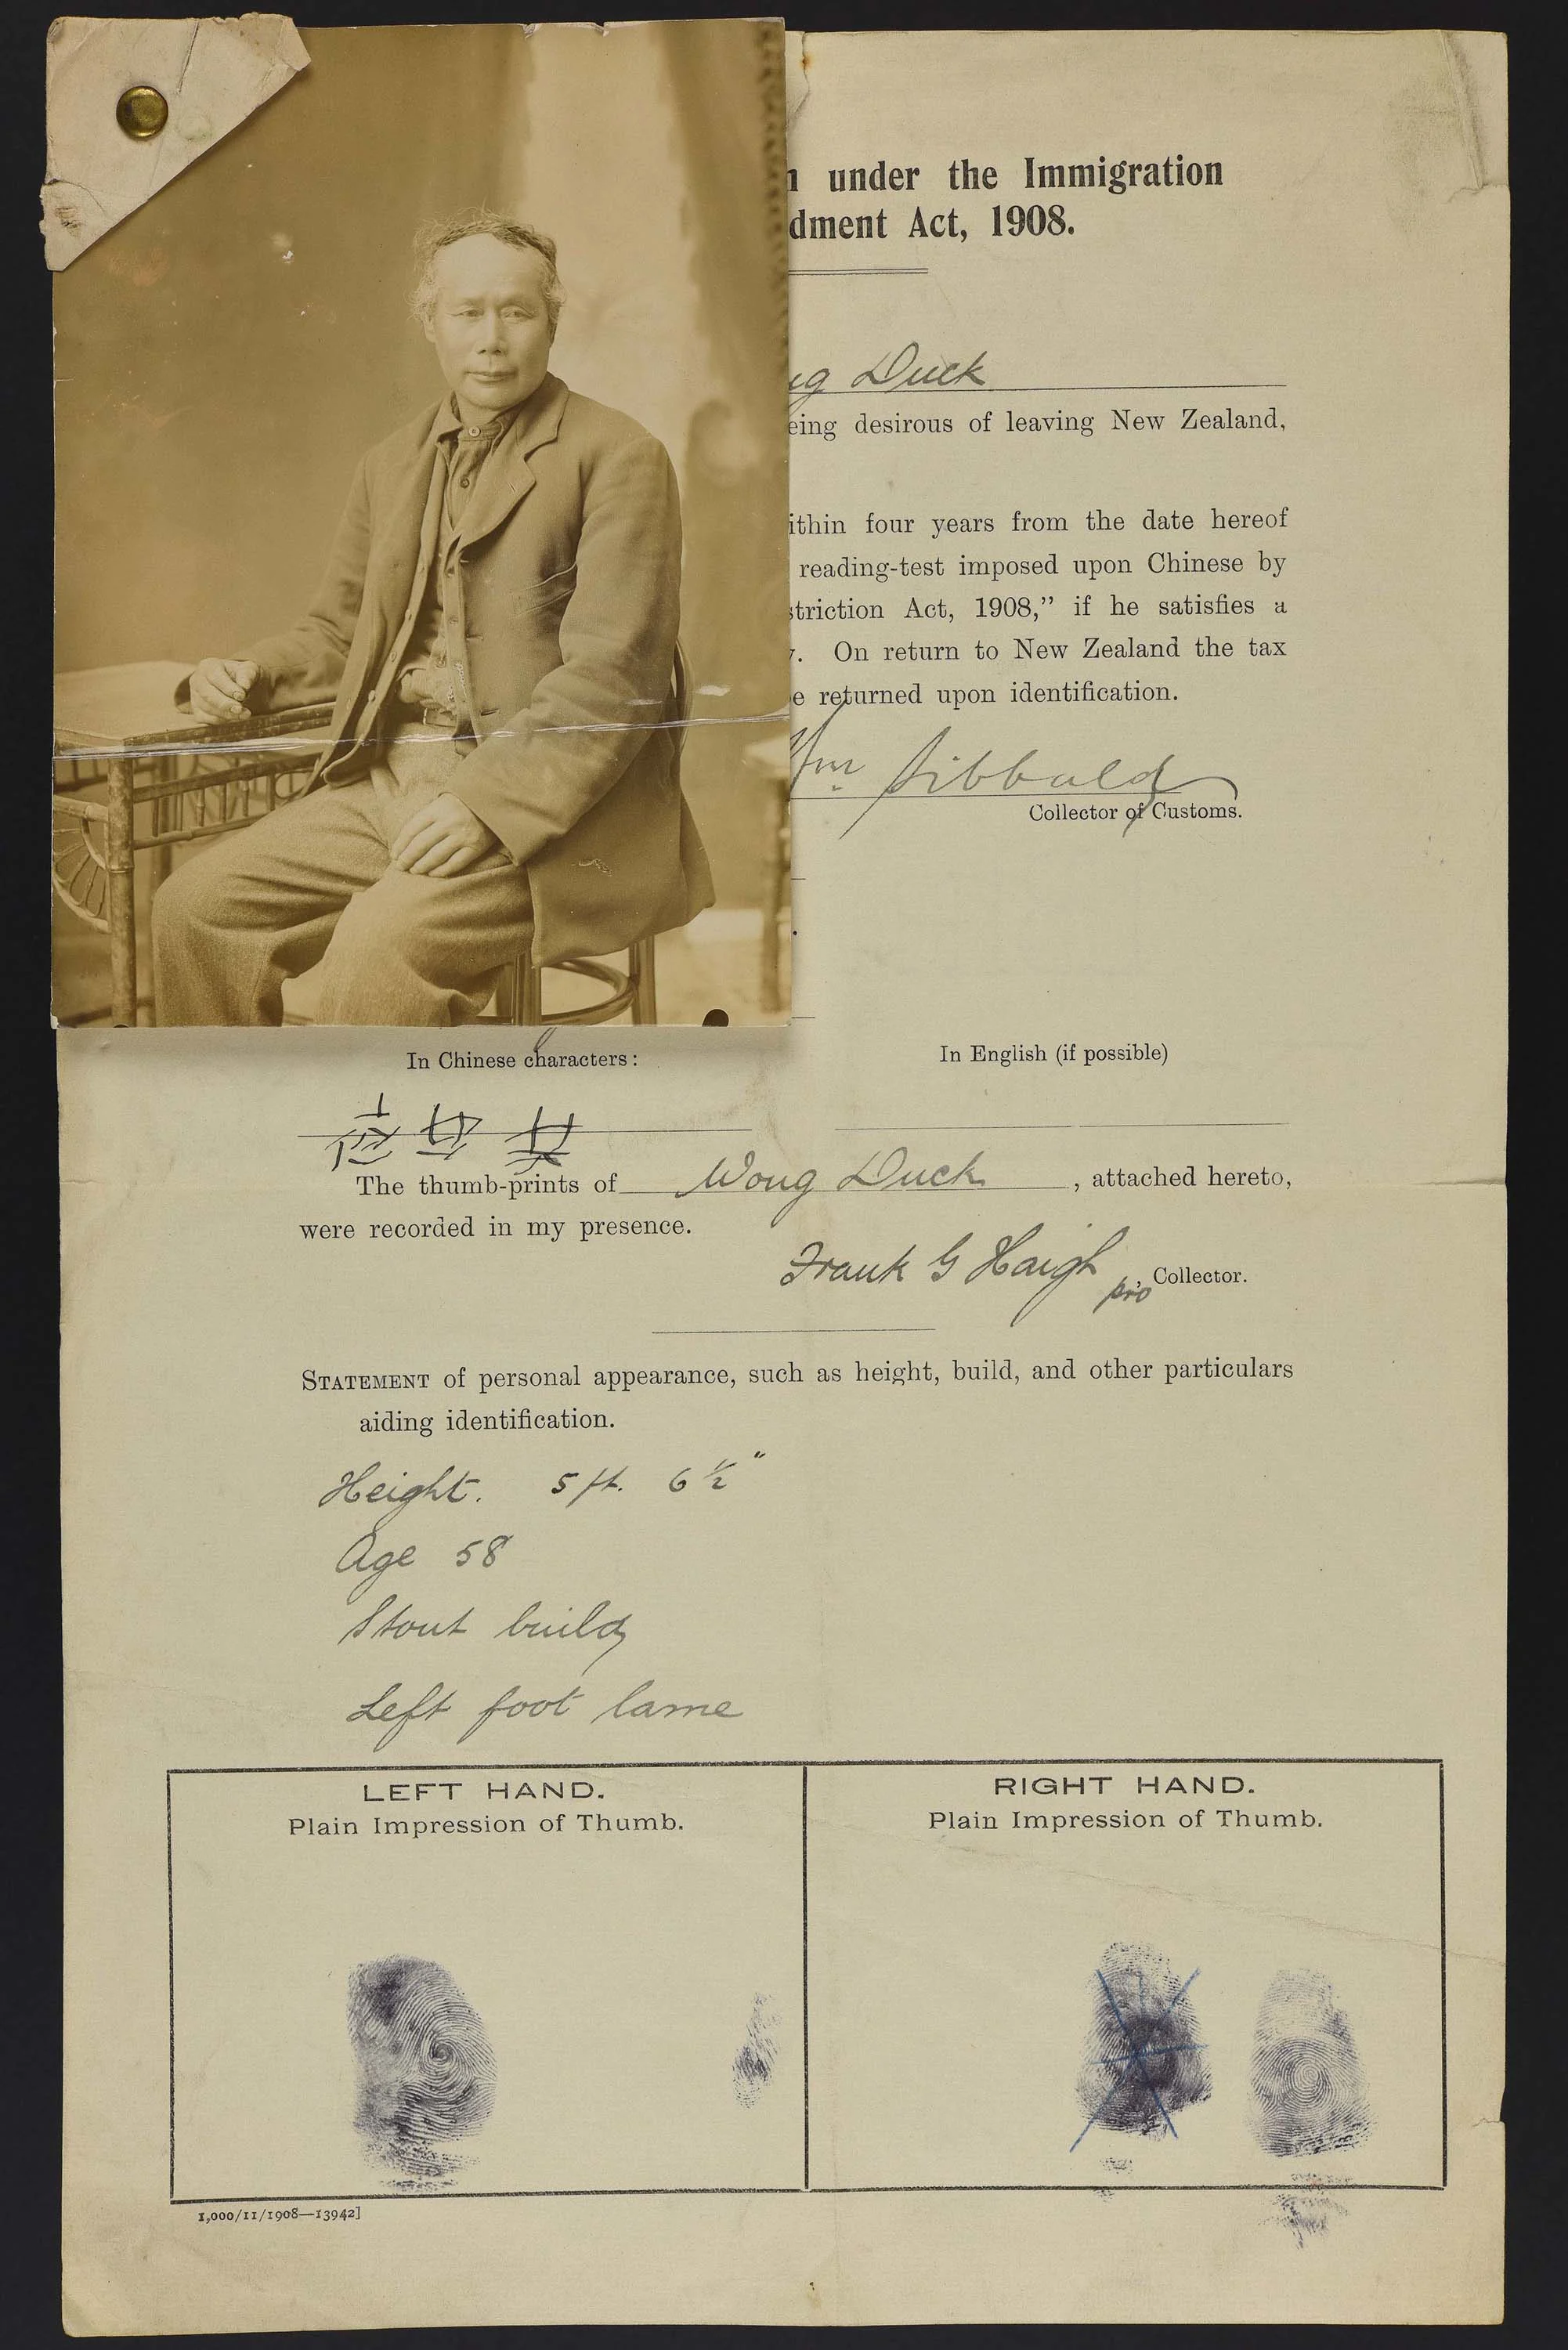 under the Immigration
dment Act, 1908.
ng Duck
eing desirous of leaving New Zealand,
ithin four years from the date hereof
reading-test imposed upon Chinese by
striction Act, 1908,” if he satisfies a
y. On return to New Zealand the tax
e returned upon identification.
Wm Sibbald
Collector of Customs.
In Chinese characters:
In English (if possible)
The thumb-prints of Wong Duck, attached hereto,
were recorded in my presence.
Frank G Haigh
pro, Collector.
STATEMENT of personal appearance, such as height, build, and other particulars
aiding identification.
Height. 5 ft. 6 ½"
Age 58
Stout build
Left foot lame
LEFT HAND.
Plain Impression of Thumb.
RIGHT HAND.
Plain Impression of Thumb.
1,000/11/1908—13942]